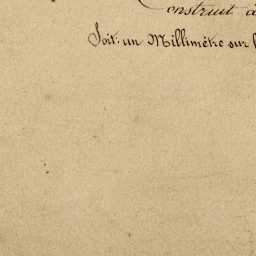 onstruit
Soit: un Millimètre sur